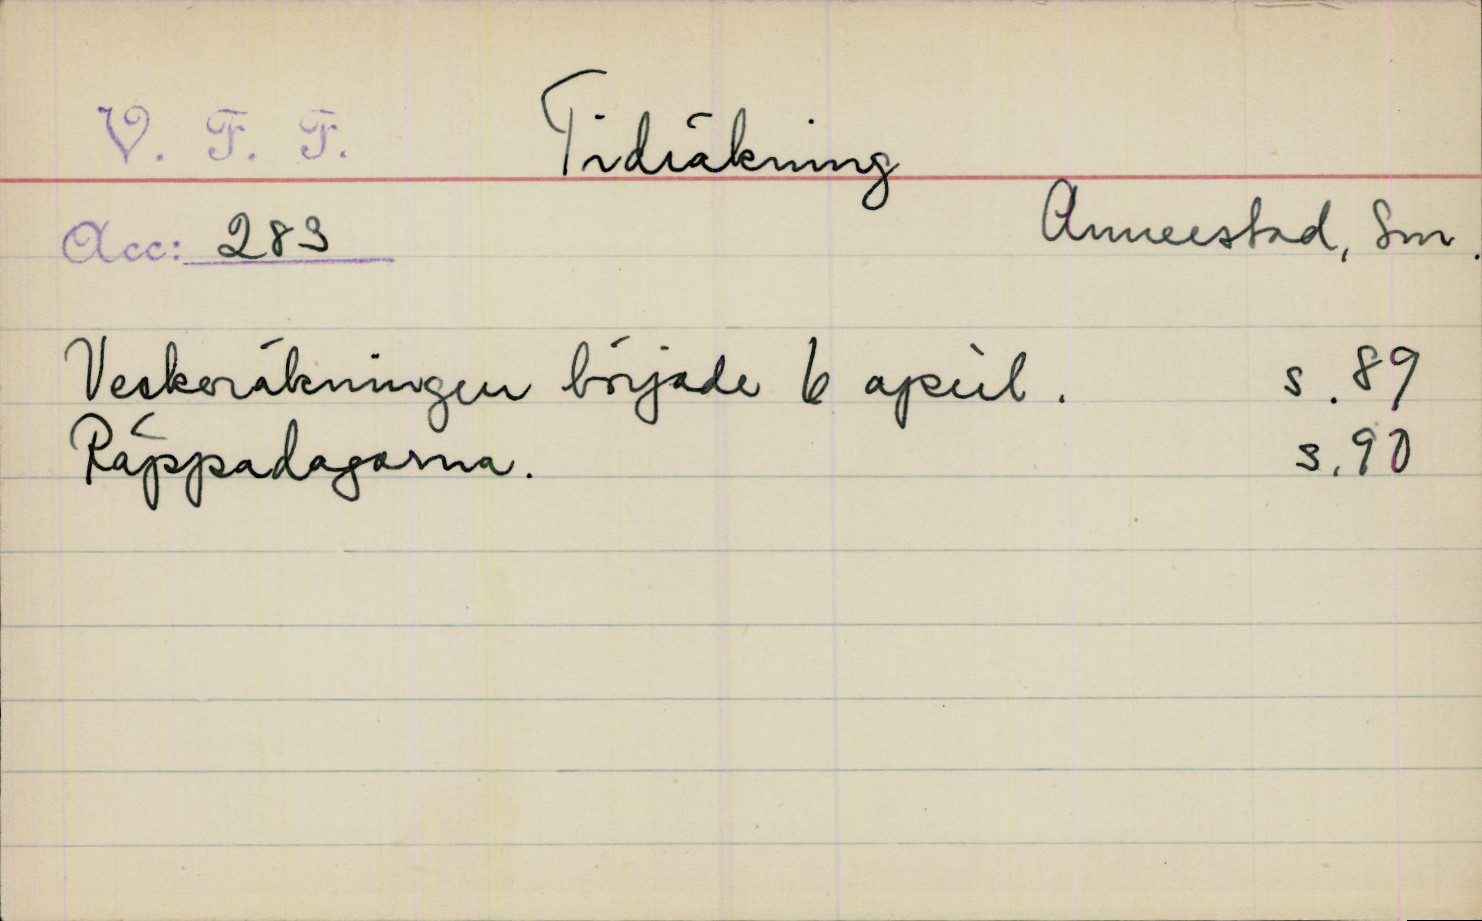 V. F. F. Tidräkning
Acc: 283 Annerstad, Sm.
Veckoräkningen började 6 april. s. 89
Räppadagarna. s. 90